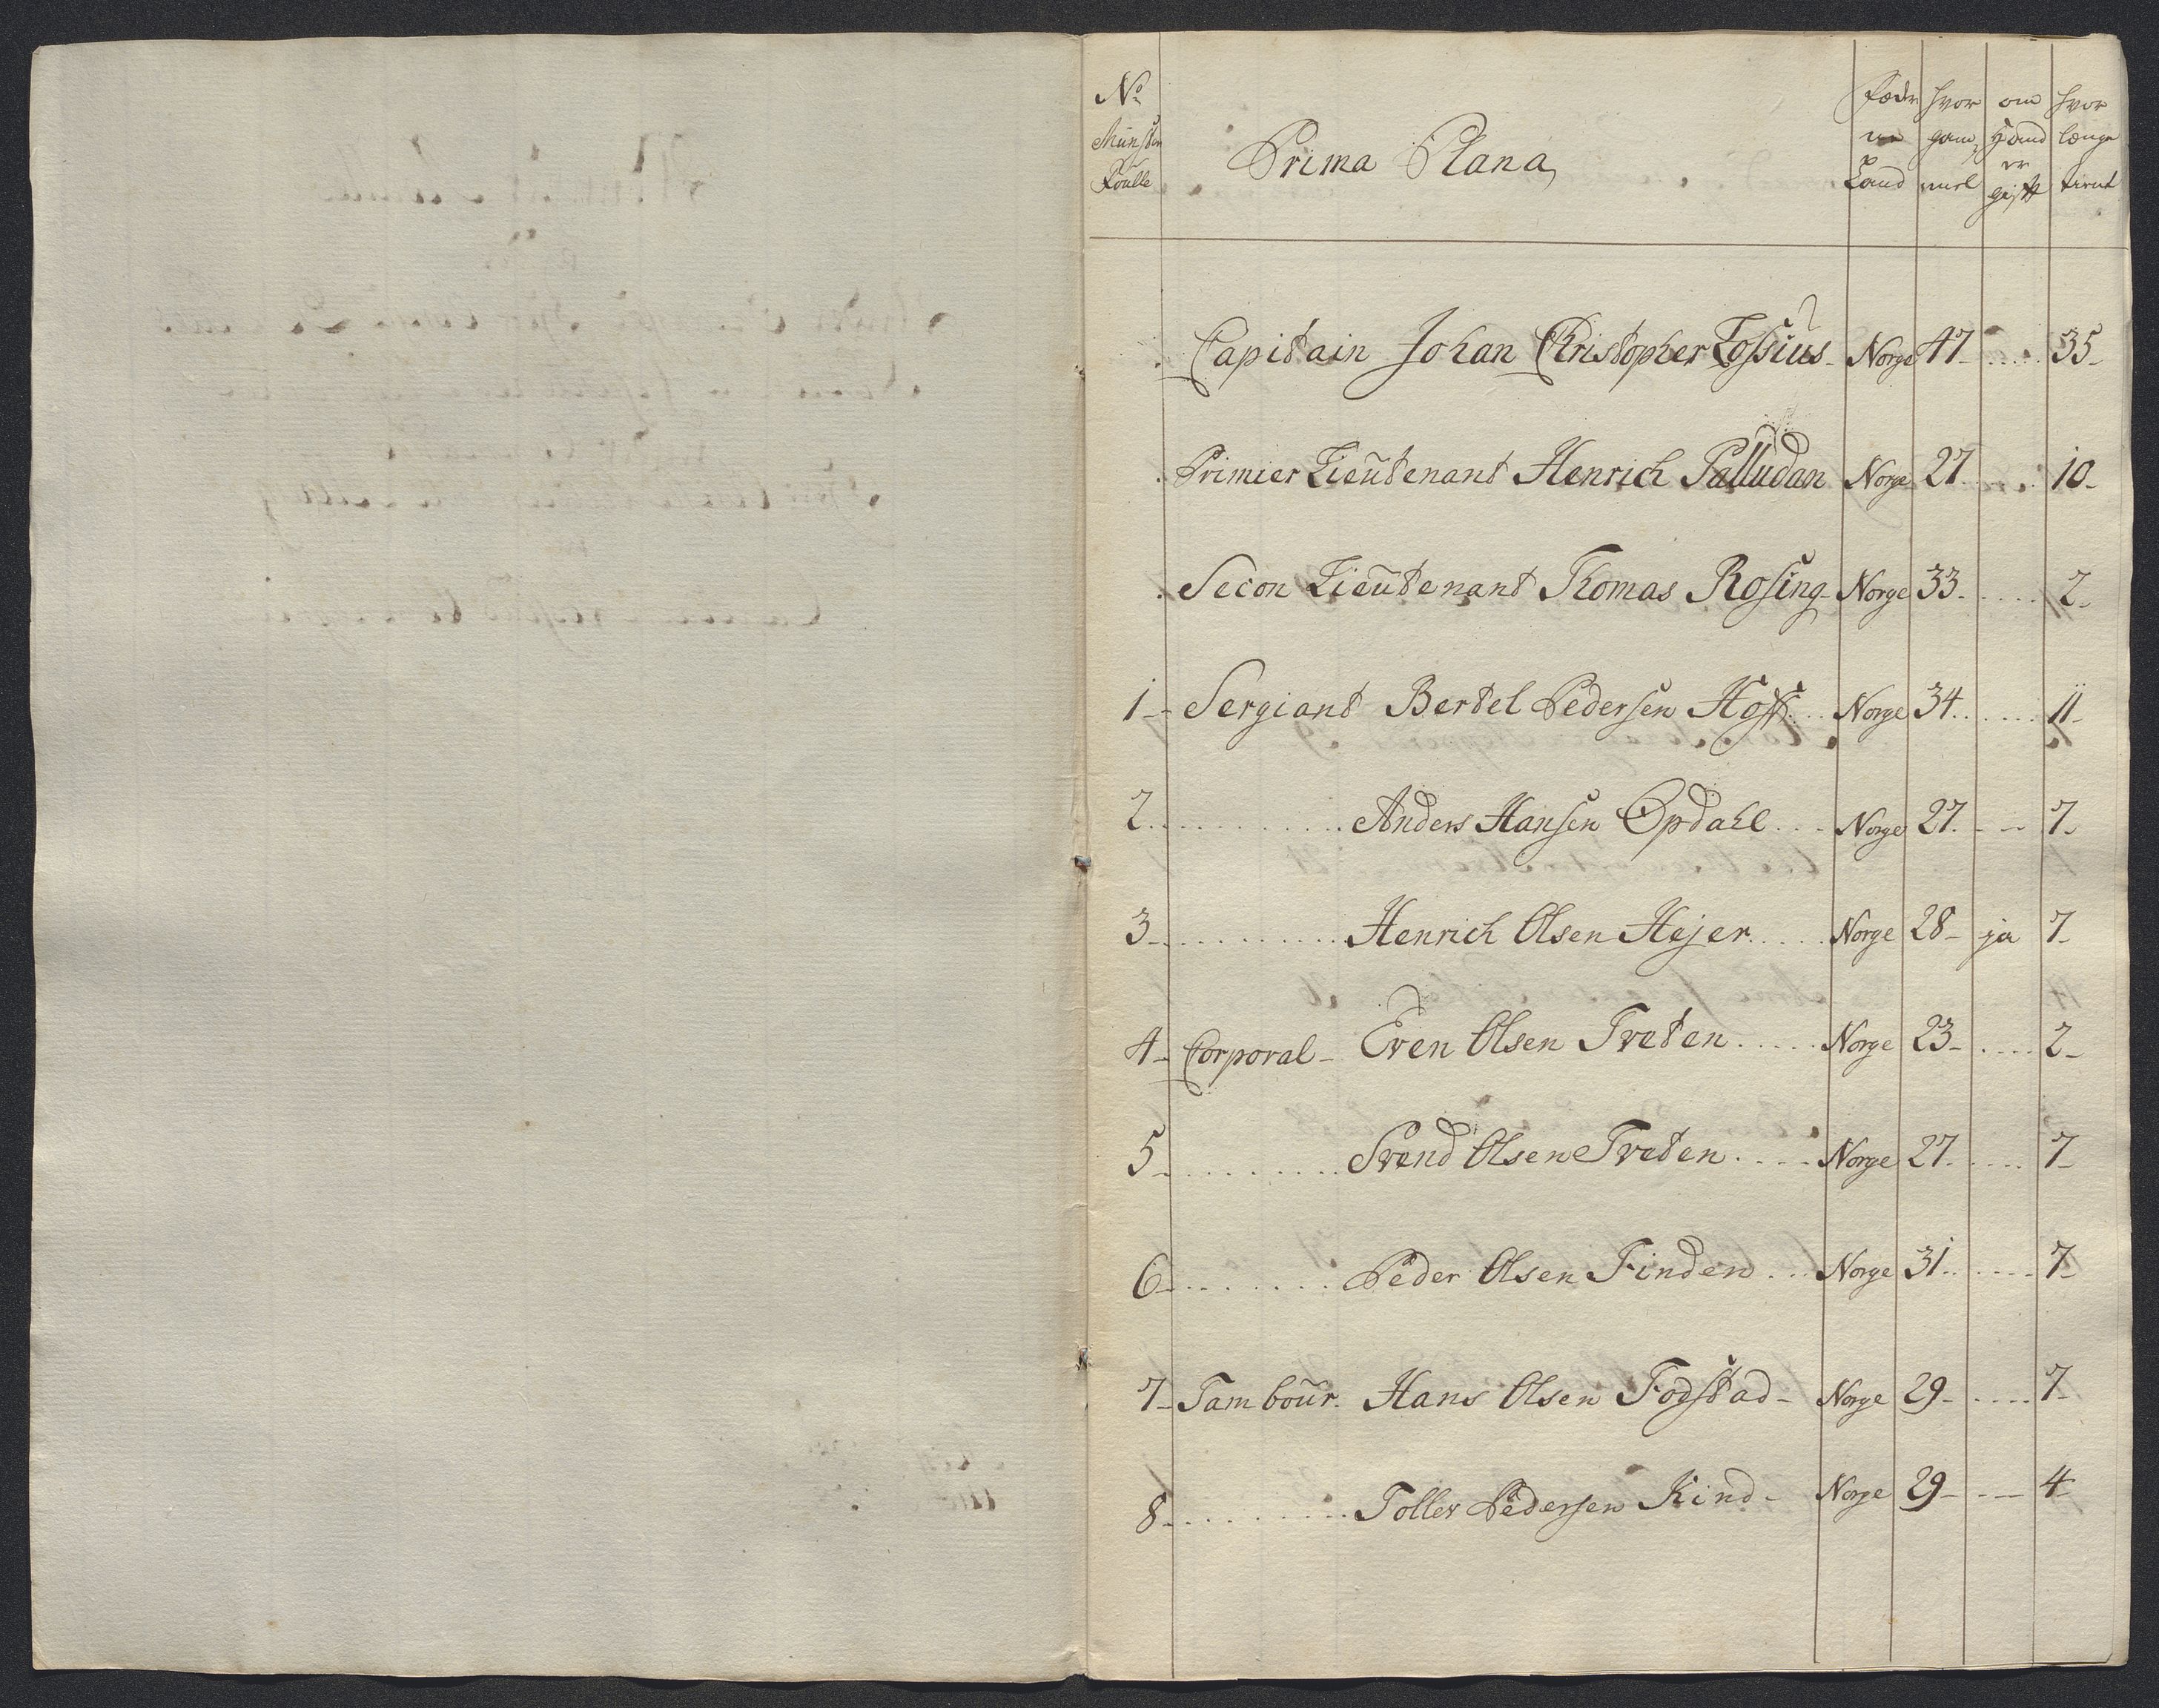 No Munster Roulle | Prima Plana, | Fæde rne Land | hvor gam mel | om Hand er gift | hvor længe tient
Capitain Johan Christopher Lossius - Norge 47 - ..... 35 -
Primier Lieutenant Henrich Palludan Norge 27 ..... 10 -
Secon Lieutenant Thomas Rosing - Norge 33 - ..... 2 -
1 - Sergiant Bertel Pedersen Hoff ... Norge 34 ..... 11 -
2 .......... Anders Hansen Opdahl ... Norge 27 - - 7 -
3 - .......... Henrich Olsen Hejer ..... Norge 28 - ja 7 -
4 - Corporal - Even Olsen Tveten ..... Norge 23 - ..... 2 -
5 - .......... Svend Olsen Tveten ..... Norge 27 ..... 7 -
6 - .......... Peder Olsen Finden ... Norge 31 ..... 7 -
7 - Tambour. Hans Olsen Fogstad - Norge 29 - ..... 7 -
8 - .......... Tollev Pedersen Kind - Norge 29 - - 4 -